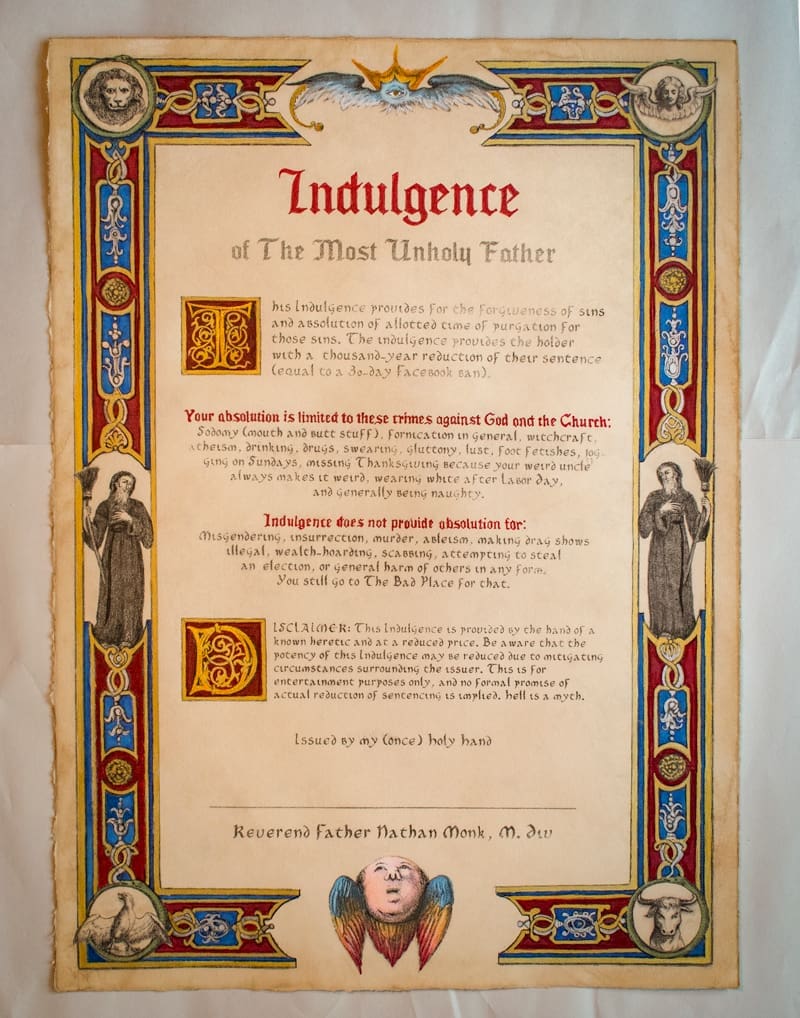 Indulgence
of The Most Unholy Father
This Indulgence provides for the forgiveness of sins
and absolution of allotted time of purgation for
those sins. The indulgence provides the holder
with a thousand-year reduction of their sentence
(equal to a 30-day Facebook ban).
Your absolution is limited to these crimes against God and the Church:
Sodomy (mouth and butt stuff), fornication in general, witchcraft,
atheism, drinking, drugs, swearing, gluttony, lust, foot fetishes, jog-
ging on Sundays, missing Thanksgiving because your weird uncle
always makes it weird, wearing white after Labor Day,
and generally being naughty.
Indulgence does not provide absolution for:
Misgendering, insurrection, murder, ableism, making drag shows
illegal, wealth-hoarding, scabbing, attempting to steal
an election, or general harm of others in any form.
You still go to The Bad Place for that.
DISCLAIMER: This Indulgence is provided by the hand of a
known heretic and at a reduced price. Be aware that the
potency of this Indulgence may be reduced due to mitigating
circumstances surrounding the issuer. This is for
entertainment purposes only, and no formal promise of
actual reduction of sentencing is implied. hell is a myth.
Issued by my (once) holy hand
Reverend Father Nathan Monk, M. Div